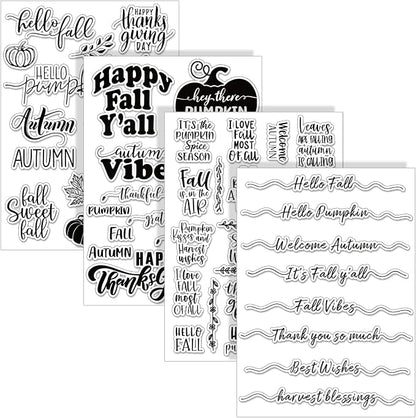 hello fall
HAPPY
thanks
giving
DAY
HELLO
Autumn
AUTUMN
fall
Sweet
fall
Happy
Fall
Y'all
autumn
Vibe
thankful
PUMPKIN
FALL
AUTUMN
hey there
PUMPKIN
IT'S THE
PUMPKIN
Spice
SEASON
I LOVE
FALL
MOST
OF ALL
Welcome
AUTUMN
Leaves
ARE FALLING
autumn
IS CALLING
Fall
IS IN THE
AIR
Pumpkin
kisses and
Harvest
wishes
I LOVE
FALL
most
OF ALL
HELLO
FALL
Hello Fall
Hello Pumpkin
Welcome Autumn
It's Fall y'all
Fall Vibes
Thank you so much
Best Wishes
harvest blessings